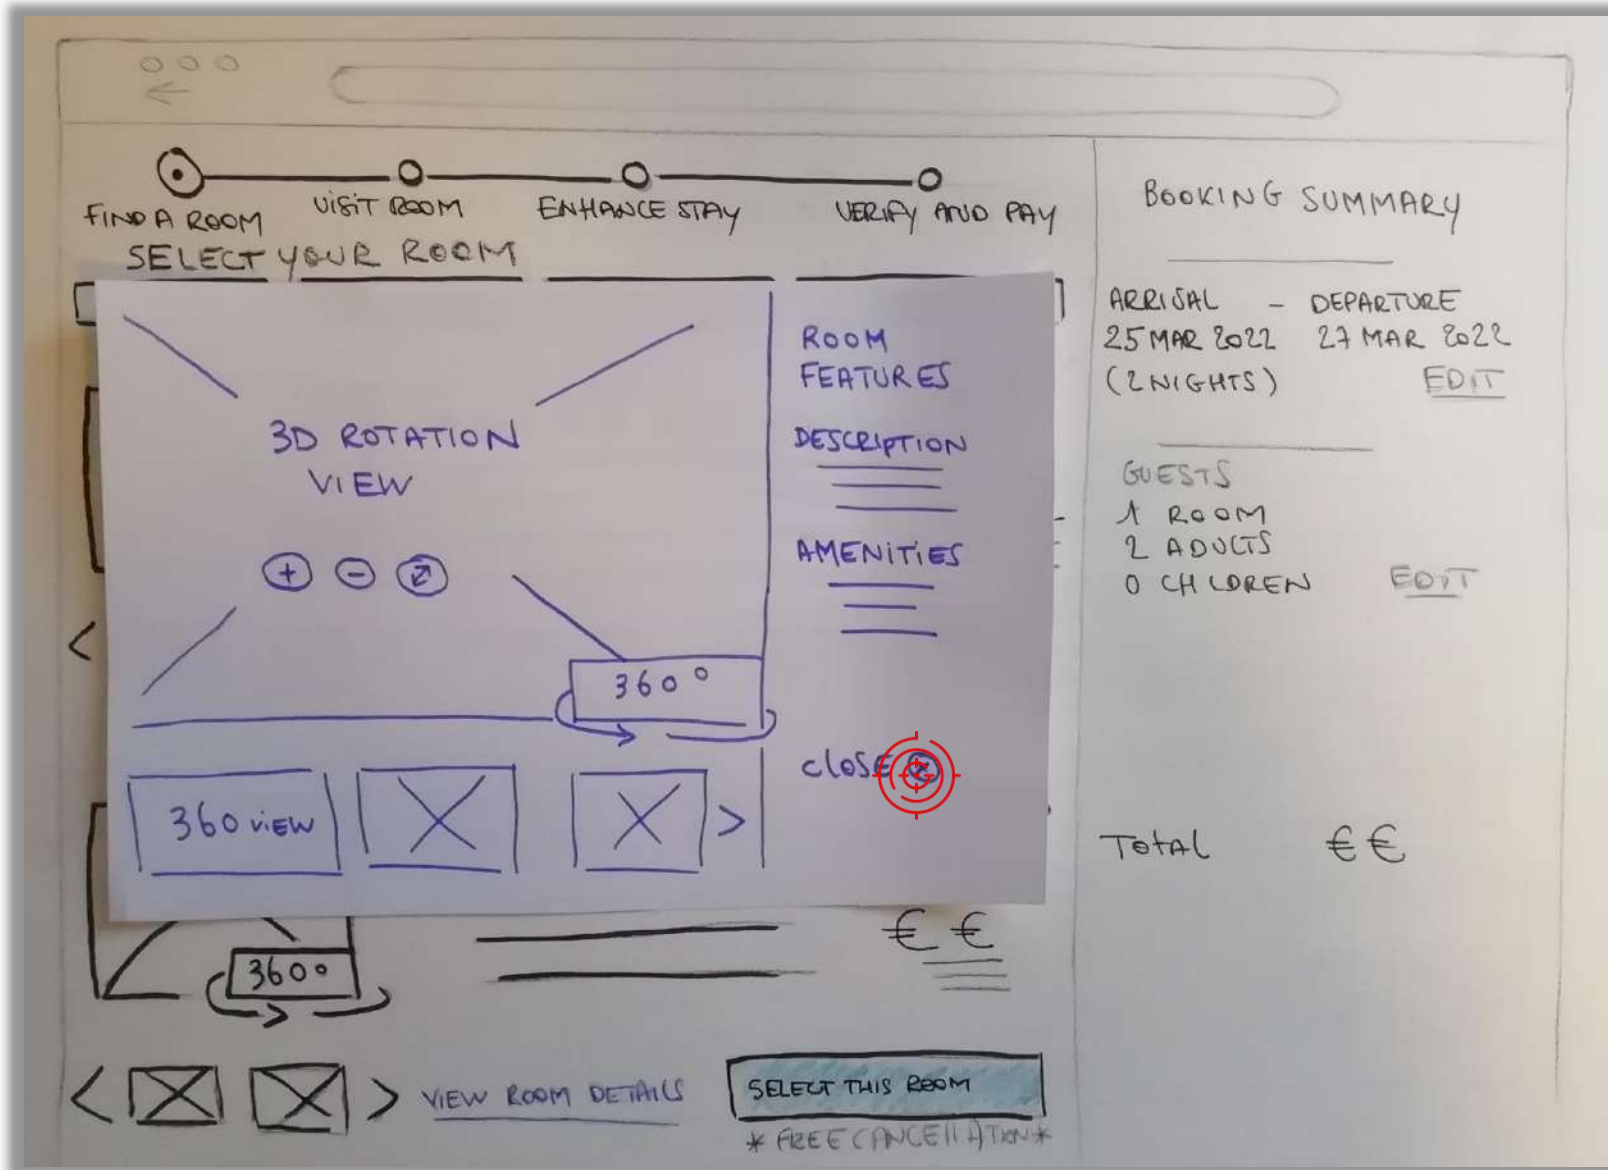 FIND A ROOM
VISIT ROOM
ENHANCE STAY
VERIFY AND PAY
SELECT YOUR ROOM
3D ROTATION
VIEW
+ -
360°
360 VIEW
>
ROOM
FEATURES
DESCRIPTION
AMENITIES
CLOSE
<
360°
€ €
< > VIEW ROOM DETAILS
SELECT THIS ROOM
* FREE CANCELLATION *
BOOKING SUMMARY
ARRISAL - DEPARTURE
25 MAR 2022 27 MAR 2022
(2 NIGHTS) EDIT
GUESTS
1 ROOM
2 ADULTS
0 CHLDREN EDIT
TOTAL €€